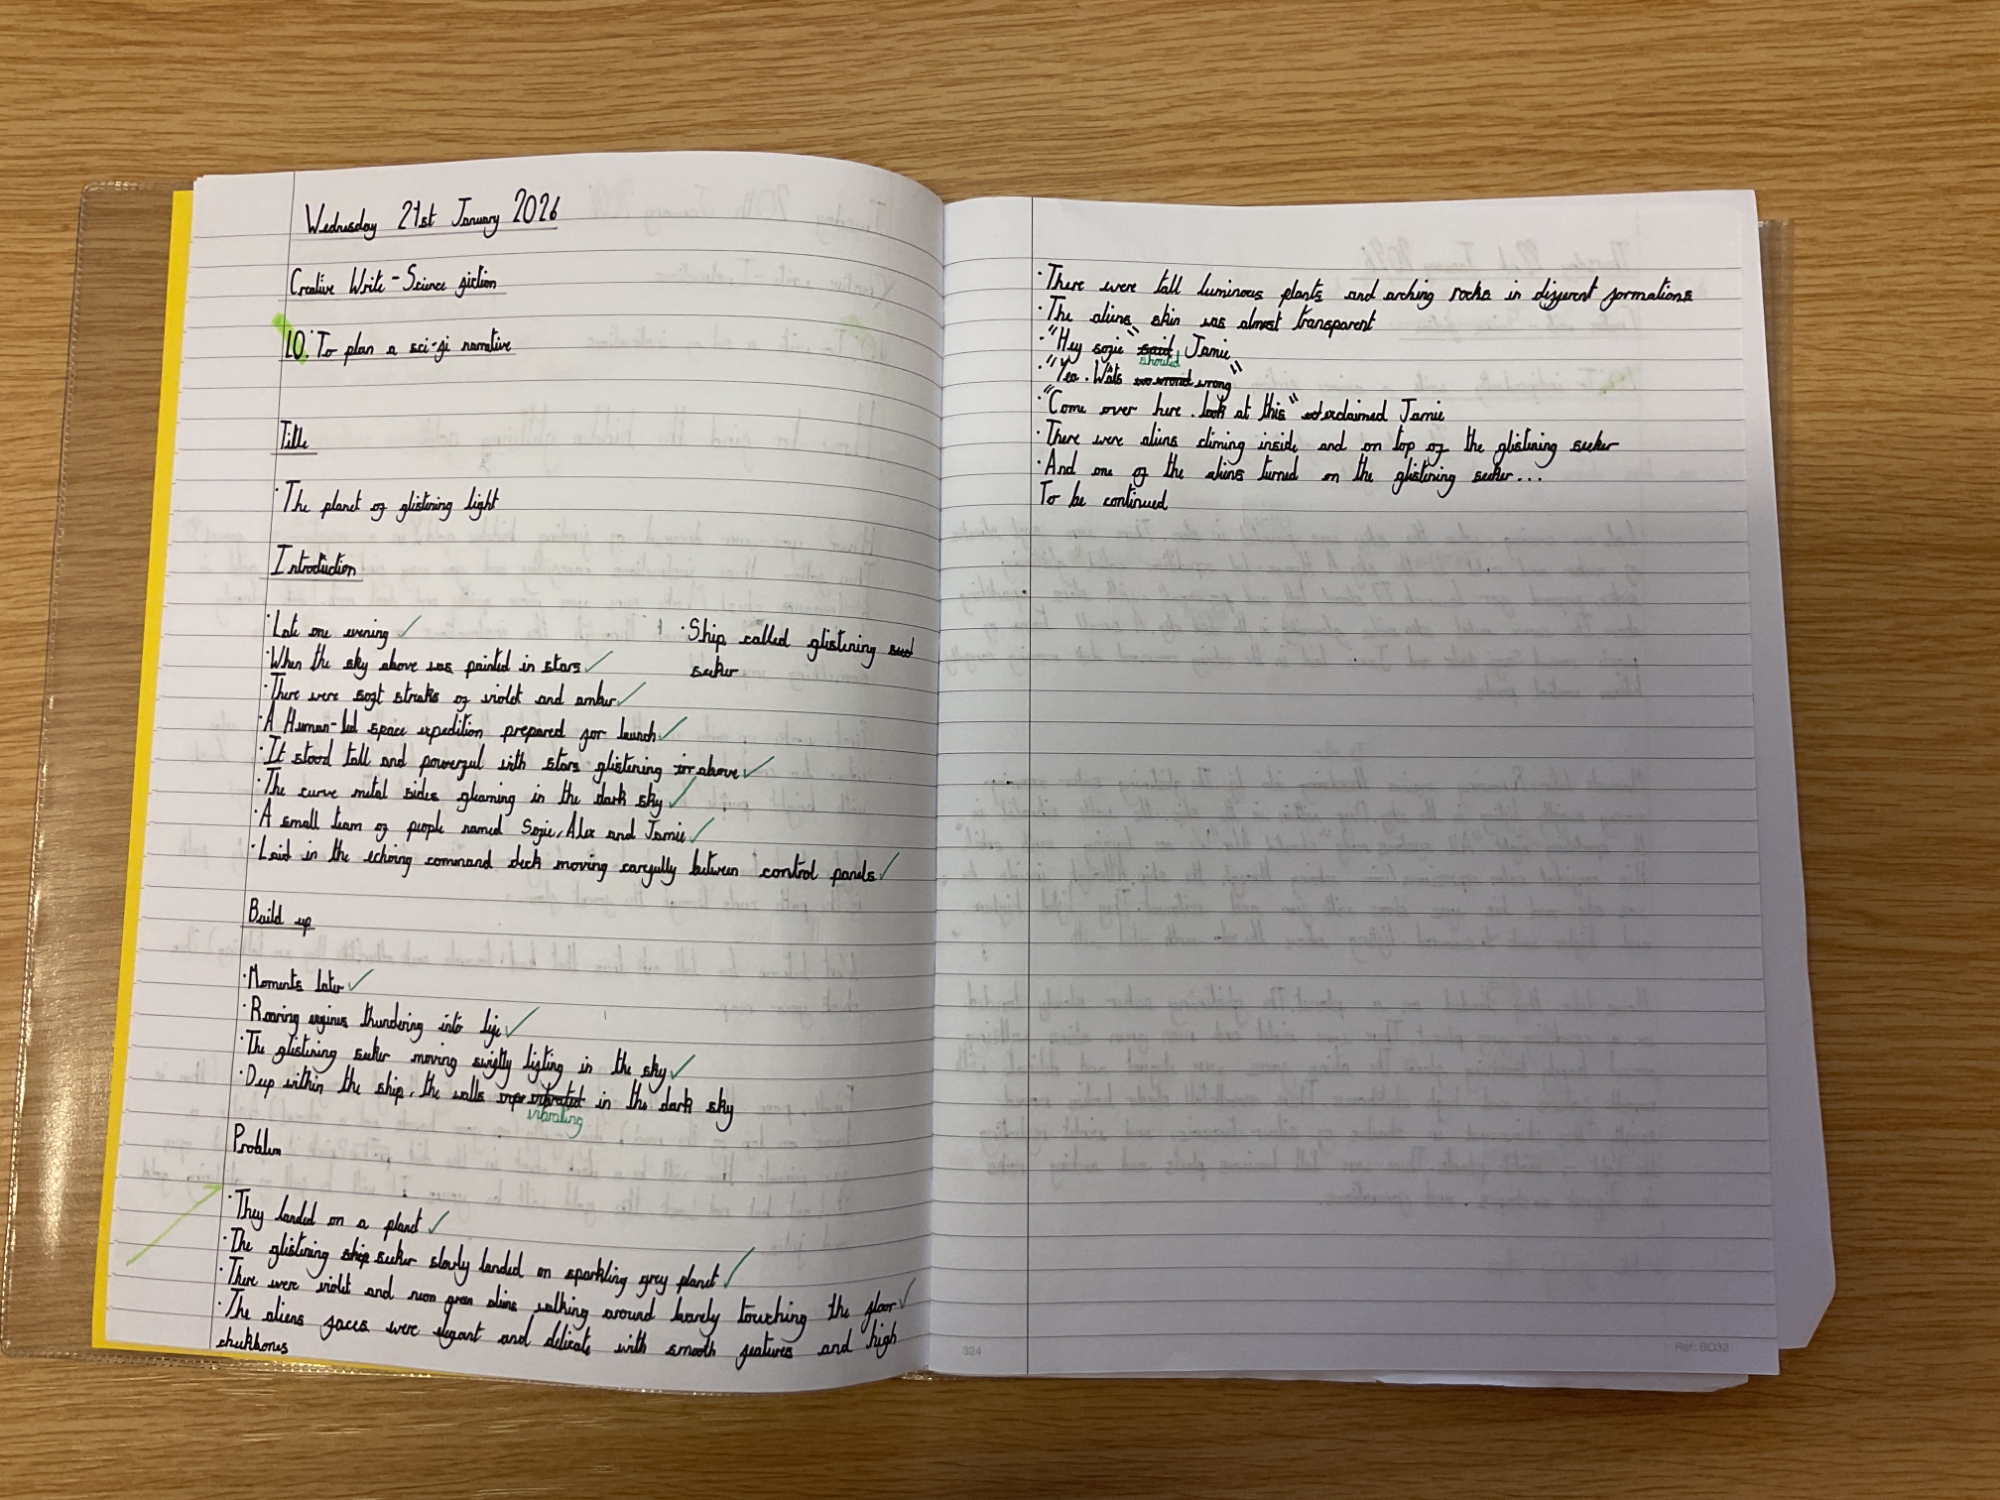 Wednesday 21st January 2026
Creative Write - Science fiction
LO: To plan a sci-fi narrative
Title
· The planet of glistening light
Introduction
· Late one evening ✓
· Ship called glistening
seeker
· When the sky above was painted in stars ✓
· There were soft streaks of violet and amber ✓
· A Human-led space expedition prepared for launch ✓
· It stood tall and powerful with stars glistening above ✓
· The curve metal sides gleaming in the dark sky ✓
· A small team of people named Sofie, Alex and Jamie ✓
· Laid in the echoing command deck moving carefully between control panels ✓
Build up
· Moments later ✓
· Roaring engines thundering into life ✓
· The glistening seeker moving swiftly lifting in the sky ✓
· Deep within the ship, the walls vibrated in the dark sky
vibrating
Problem
· They landed on a planet ✓
· The glistening ship seeker slowly landed on sparkling grey planet ✓
· There were violet and neon green aliens walking around barely touching the floor ✓
· The aliens faces were elegant and delicate with smooth features and high
cheekbones
· There were tall luminous plants and arching rocks in different formations
· The aliens skin was almost transparent
· "Hey sofie" said Jamie
shouted
· "Yea. Wats wrong"
· "Come over here. look at this" exclaimed Jamie
· There were aliens climing inside and on top of the glistening seeker
· And one of the aliens turned on the glistening seeker...
To be continued
324
Ref: BD32